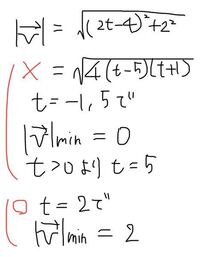 |v⃗| = √(2t-4)²+2²
× = √4(t-5)(t+1)
t = -1, 5 で
|v⃗|min = 0
t>0 より t = 5
○ t = 2 で
|v⃗|min = 2